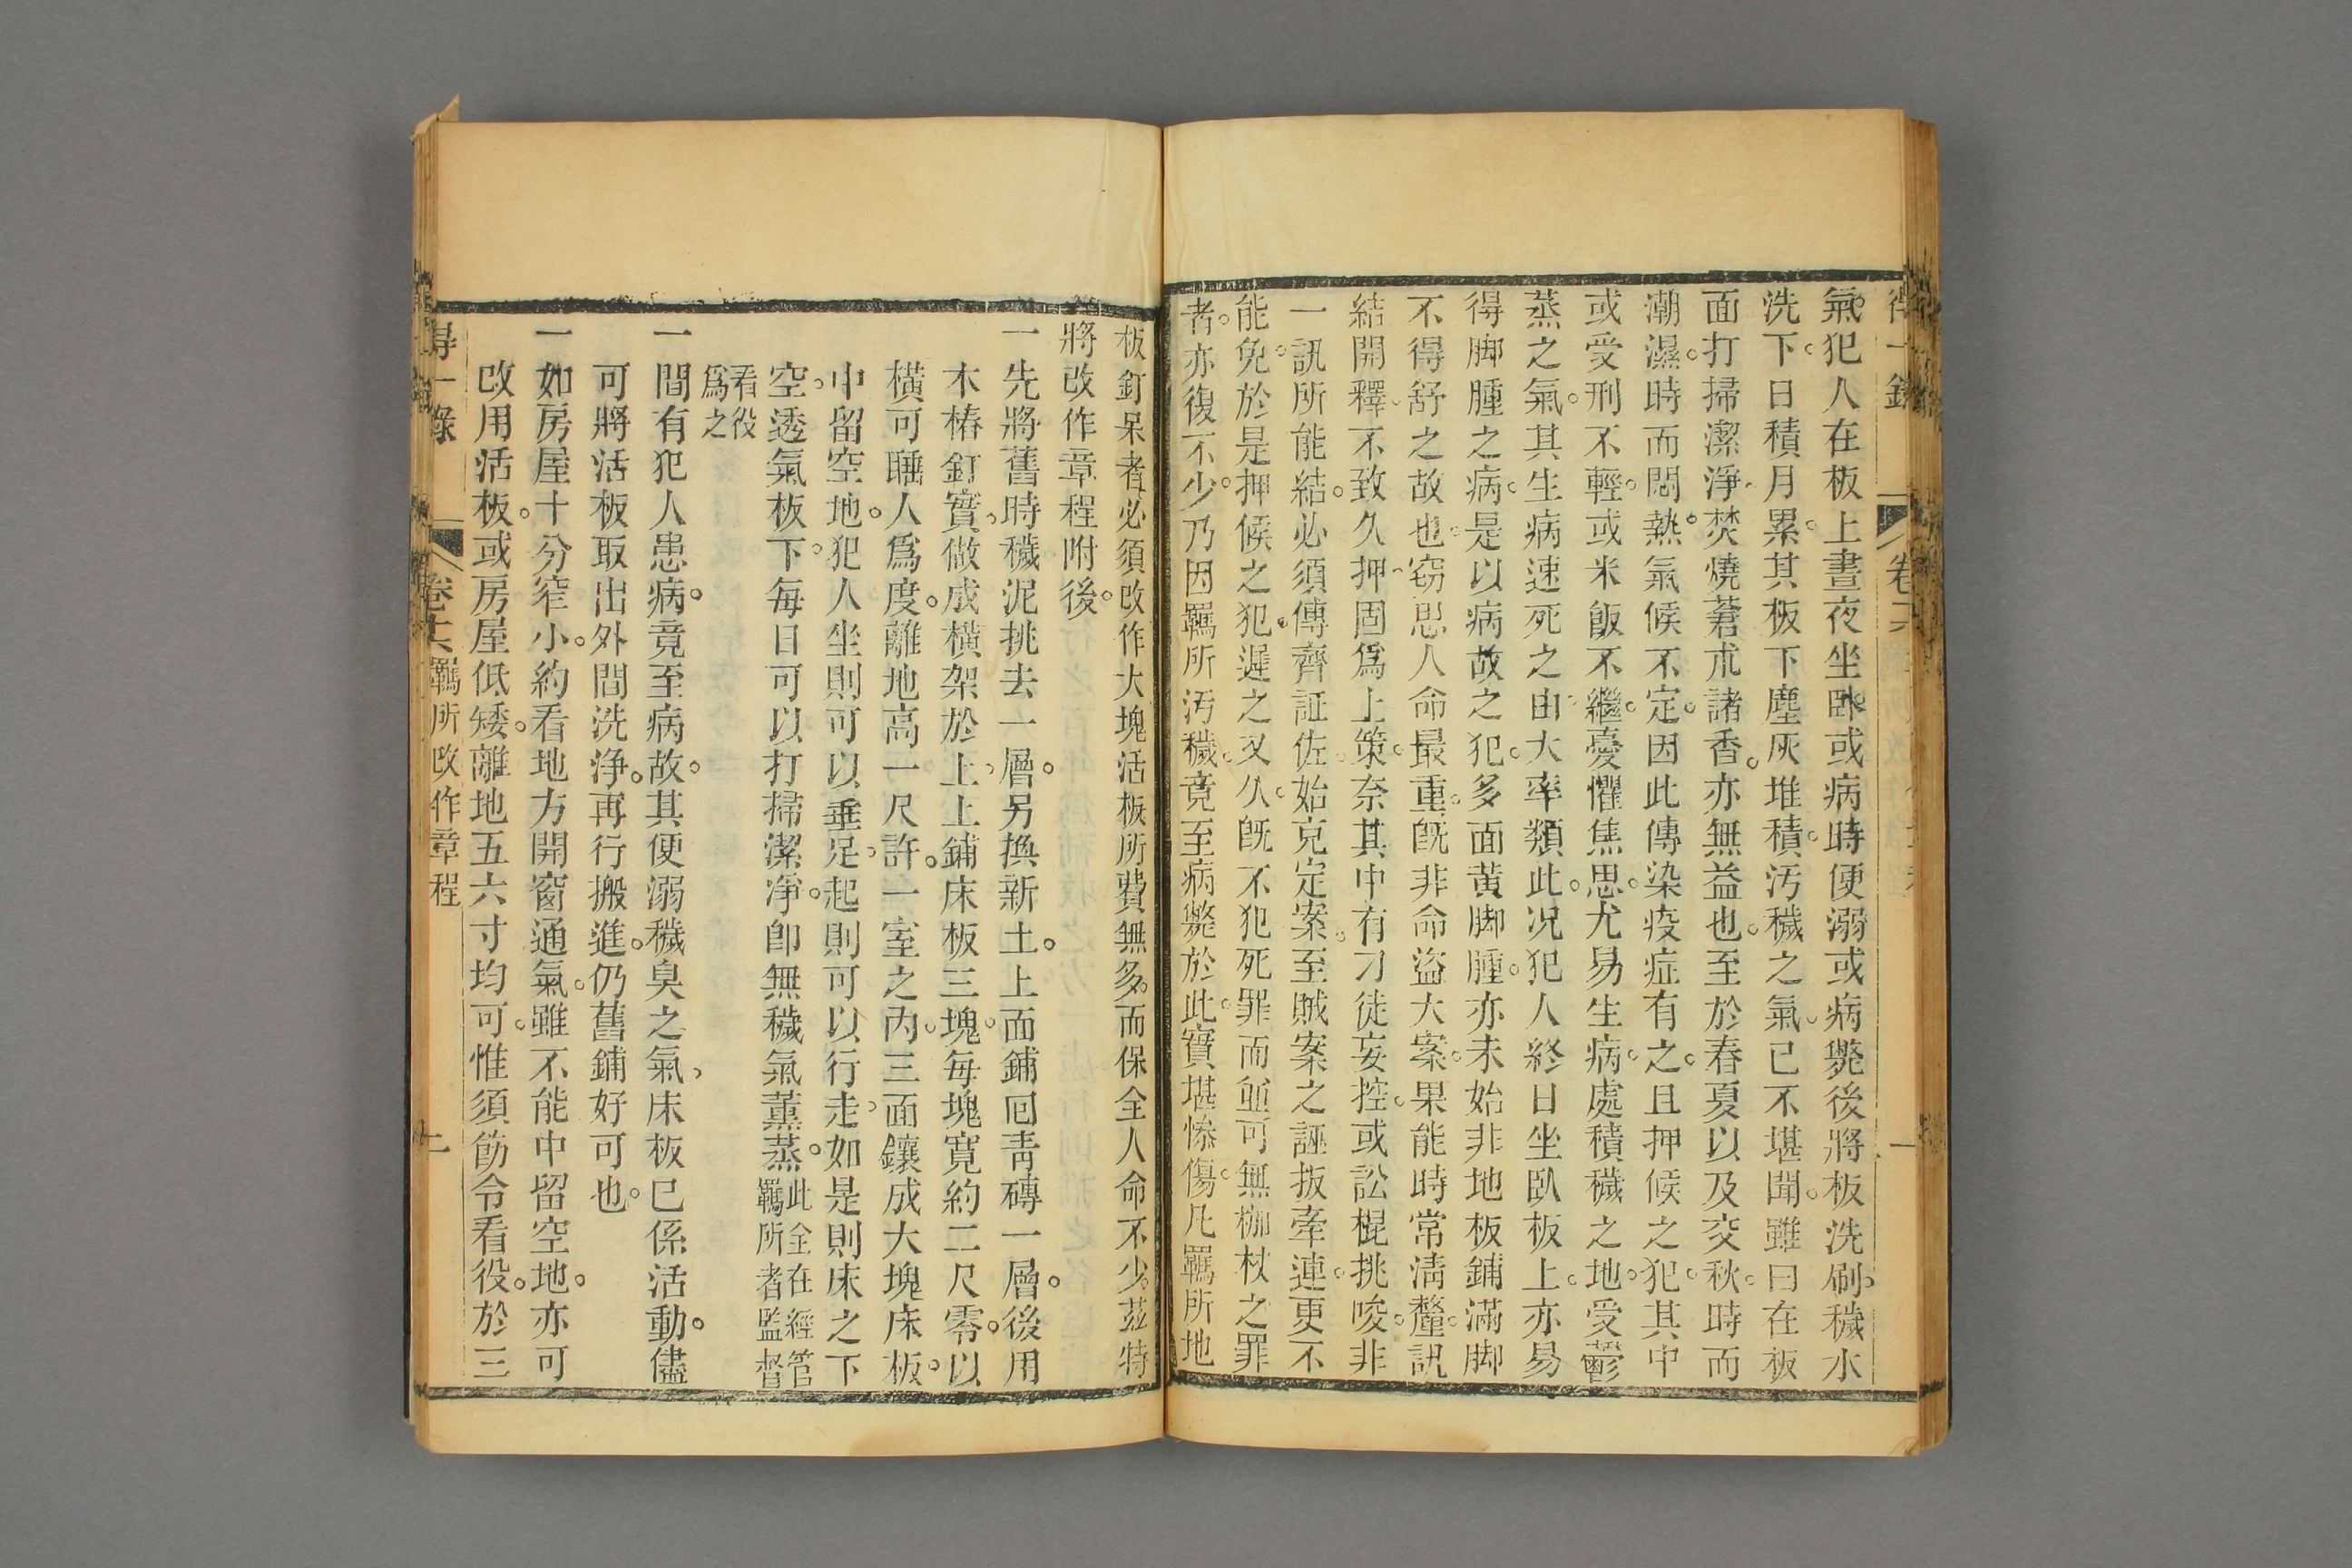 得一錄 卷十六 一
氣。犯人在板上晝夜坐臥。或病時便溺。或病斃後將板洗刷。穢水
洗下。日積月累。其板下塵灰堆積。汚穢之氣。已不堪聞。雖曰在板
面打掃潔淨。焚燒蒼朮諸香。亦無益也。至於春夏以及交秋。時而
潮濕。時而悶熱。氣候不定。因此傳染疫症有之。且押候之犯。其中
或受刑不輕。或米飯不繼。憂懼焦思。尤易生病。處積穢之地。受鬱
蒸之氣。其生病速死之由。大率類此。况犯人終日坐臥板上。亦易
得脚腫之病。是以病故之犯。多面黃脚腫。亦未始非地板鋪滿脚
不得舒之故也。窃思人命最重。旣非命盜大案。果能時常淸釐。訊
結開釋。不致久押。固爲上策。奈其中有刁徒妄控。或訟棍挑唆。非
一訊所能結。必須傳齊証佐。始克定案。至賊案之誣扳牽連。更不
能免。於是押候之犯。遲之又久。旣不犯死罪。而並可無枷杖之罪
者。亦復不少。乃因羈所汚穢。竟至病斃於此。實堪慘傷。凡羈所地
板釘呆者。必須改作大塊活板。所費無多。而保全人命不少。茲特
將改作章程附後。
一先將舊時穢泥挑去一層。另換新土。上面鋪囘靑磚一層。後用
木樁釘實。做成橫架於上。上鋪床板三塊。每塊寬約二尺零。以
橫可睡人爲度。離地高一尺許。一室之內。三面鑲成大塊床板。
中留空地。犯人坐則可以垂足。起則可以行走。如是則床之下
空。空透氣。板下。每日可以打掃潔淨。卽無穢氣薰蒸。此全在經管羈所者監督
看役爲之
一間有犯人患病。竟至病故。其便溺穢臭之氣。床板已係活動。儘
可將活板取出外間洗淨。再行搬進。仍舊鋪好可也。
一如房屋十分窄小。約看地方開窗通氣。雖不能中留空地。亦可
改用活板。或房屋低矮。離地五六寸均可。惟須飭令看役。於三
得一錄 卷十六 羈所改作章程 二